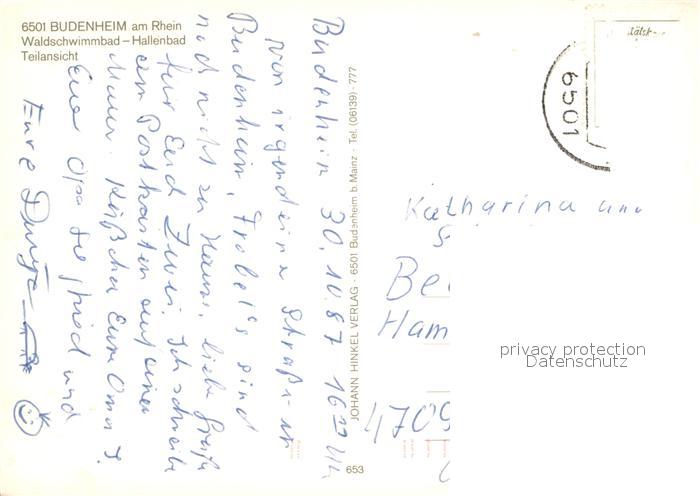 6501 BUDENHEIM am Rhein
Waldschwimmbad – Hallenbad
Teilansicht
Budenheim 30.10.87 16
von irgendeine Straße in
Budenheim, Frobel's sind
noch nicht zu Hause, liebe Grüße
für Euch Zwei. Ich schreibe
am Postkasten auf einer
Mauer. Küßchen Eure Oma
Euer Opa und
Eure
JOHANN HINKEL VERLAG · 6501 Budenheim b. Mainz · Tel. (06139) · 777
653
6501
Katharina und
Be
Ham
4709
privacy protection
Datenschutz